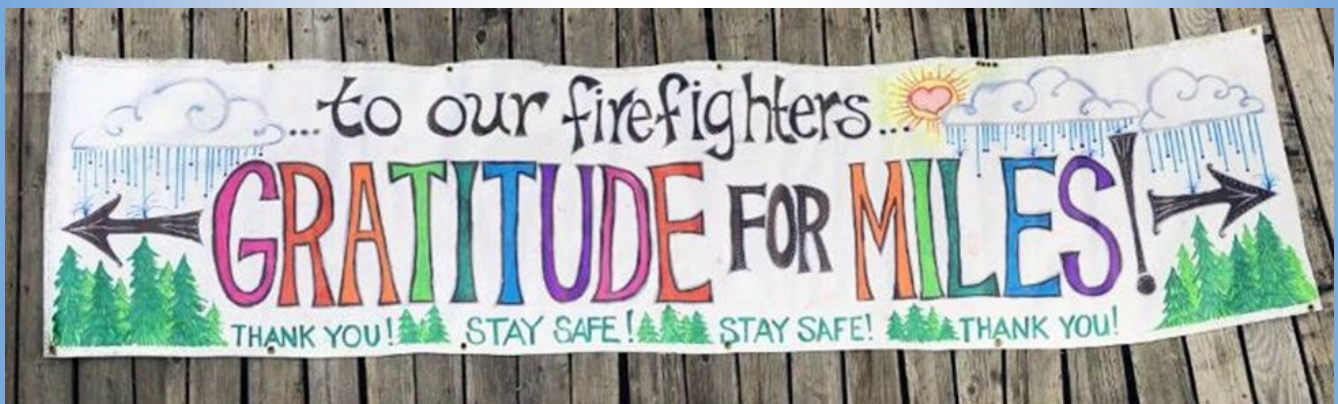 ...to our firefighters...
GRATITUDE FOR MILES!
THANK YOU! STAY SAFE! STAY SAFE! THANK YOU!